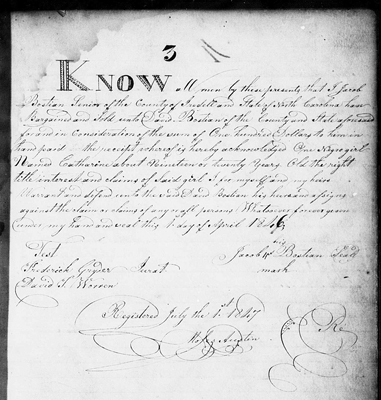 3
KNOW all men by these presents that I Jacob
Bostian Senior of the County of Iredell and State of North Carolina have
Bargained and Sold unto David Bostian of the County and State aforesaid
for and in Consideration of the sum of One hundred Dollars to him in
hand paid the receipt whereof is hereby acknowledged One Negro girl
Named Catharine about Nineteen or twenty Years Old the right
title interest and claims of Said girl I for myself and my heirs
Warrant and defend unto the Said David Bostian his heirs and assigns
against the claim or claims of any or all persons Whatsoever forever given
under my hand and seal this 1 day of April 1846
Test Jacob his Bostian Seal
Frederick Jurat mark
David S.
Registered July the 1st 1847